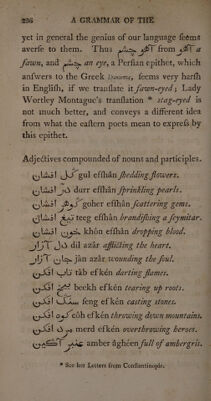 236 A GRAMMAR OF THE
yet in general the genius of our language seems
averse to them. Thus آهو چشم from آهو a
fawn, and چشم an eye, a Persian epithet, which
answers to the Greek seems very harsh
in English, if we translate it fawn-eyed; Lady
Wortley Montague's translation * stag-eyed is
not much better, and conveys a different idea
from what the eastern poets mean to express by
this epithet.
Adjectives compounded of nouns and participles.
گل افشان gul efshân shedding flowers.
در افشان durr efshân sprinkling pearls.
گوهر افشان goher efshân scattering gems.
تیغ افشان teeg efshân brandishing a scymitar.
خون افشان khôn efshân dropping blood.
دل آزار dil azâr afflicting the heart.
جان آزار jân azâr wounding the soul.
تاب افکن tâb efkén darting flames.
بیخ افکن beekh efkén tearing up roots.
سنگ افکن seng efkén casting stones.
کوه افکن côh efkén throwing down mountains.
مرد افکن merd efkén overthrowing heroes.
عنبر آگین amber âgheen full of ambergris.
* See her Letters from Constantinople.